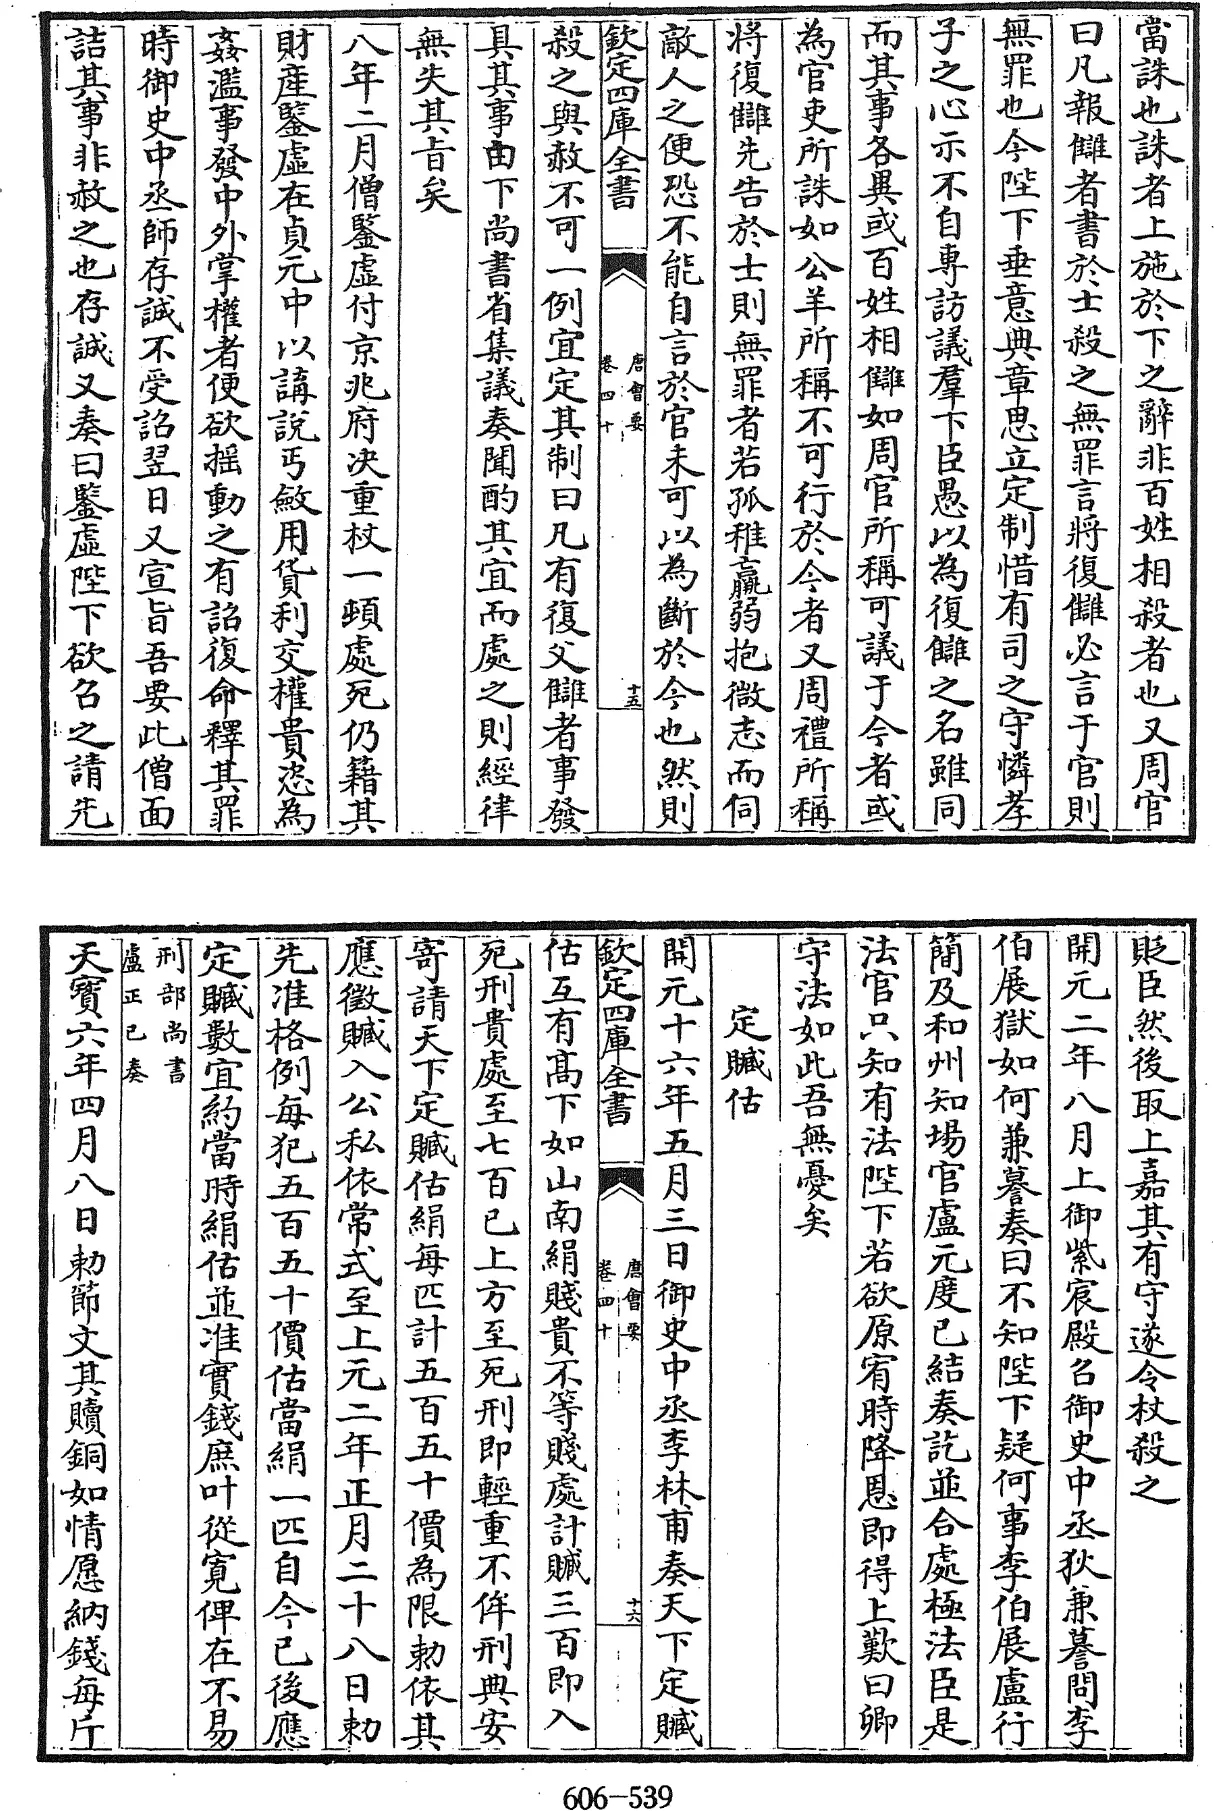 當誅也誅者上施於下之辭非百姓相殺者也又周官
曰凡報讎者書於士殺之無罪言將復讎必言于官則
無罪也今陛下垂意典章思立定制惜有司之守憐孝
子之心示不自專訪議羣下臣愚以為復讎之名雖同
而其事各異或百姓相讎如周官所稱可議于今者或
為官吏所誅如公羊所稱不可行於今者又周禮所稱
將復讎先告於士則無罪者若孤稚羸弱抱微志而伺
敵人之便恐不能自言於官未可以為斷於今也然則
欽定四庫全書
唐會要
卷四十
十五
殺之與赦不可一例宜定其制曰凡有復父讎者事發
具其事由下尚書省集議奏聞酌其宜而處之則經律
無失其旨矣
八年二月僧鑒虛付京兆府决重杖一頓處死仍籍其
財産鑒虛在貞元中以講說丐斂用貨利交權貴恣為
姦濫事發中外掌權者便欲揺動之有詔復命釋其罪
時御史中丞師存誠不受詔翌日又宣旨吾要此僧面
詰其事非赦之也存誠又奏曰鑒虛陛下欲召之請先
貶臣然後取上嘉其有守遂令杖殺之
開元二年八月上御紫宸殿召御史中丞狄兼謩問李
伯展獄如何兼謩奏曰不知陛下疑何事李伯展盧行
簡及和州知場官盧元度已結奏訖並合處極法臣是
法官只知有法陛下若欲原宥時降恩即得上歎曰卿
守法如此吾無憂矣
定贓估
開元十六年五月三日御史中丞李林甫奏天下定贓
欽定四庫全書
唐會要
卷四十
十六
估互有髙下如山南絹賤貴不等賤處計贓三百即入
死刑貴處至七百已上方至死刑即輕重不侔刑典安
寄請天下定贓估絹每匹計五百五十價為限勅依其
應徵贓入公私依常式至上元二年正月二十八日勅
先准格例每犯五百五十價估當絹一匹自今已後應
定贓數宜約當時絹估並准實錢庶叶從寛俾在不易
刑部尚書
盧正已奏
天寶六年四月八日勅節文其贖銅如情愿納錢每斤
606-539